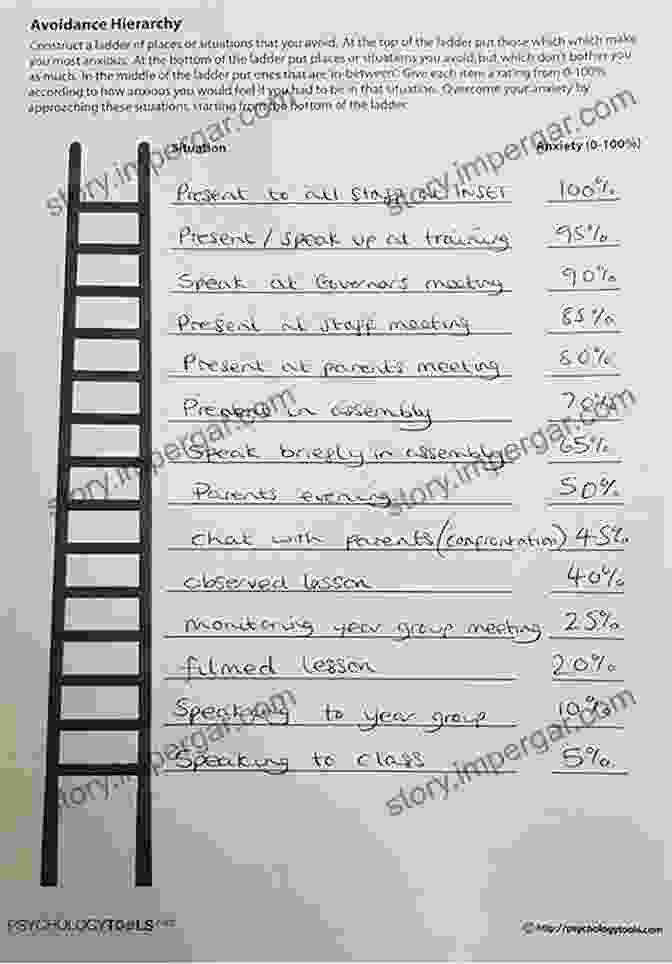 Avoidance Hierarchy
Construct a ladder of places or situations that you avoid. At the top of the ladder put those which which make
you most anxious. At the bottom of the ladder put places or situations you avoid, but which don't bother you
as much. In the middle of the ladder put ones that are 'in-between'. Give each item a rating from 0-100%
according to how anxious you would feel if you had to be in that situation. Overcome your anxiety by
approaching these situations, starting from the bottom of the ladder.
Situation Anxiety (0-100%)
Present to all staff at INSET 100%
Present / speak up at training 95%
Speak at Governors meeting 90%
Present at staff meeting 85%
Present at parents meeting 80%
Present in assembly
Speak briefly in assembly 65%
Parents evening 50%
chat with parents (confrontation) 45%
observed lesson 40%
monitoring year group meeting 25%
filmed lesson 20%
Speaking to year group 10%
Speaking to class 5%
story.impergar.com
story.impergar.com
story.impergar.com
story.impergar.com
story.impergar.com
story.impergar.com
PSYCHOLOGYTOOLS
© http://psychologytools.com